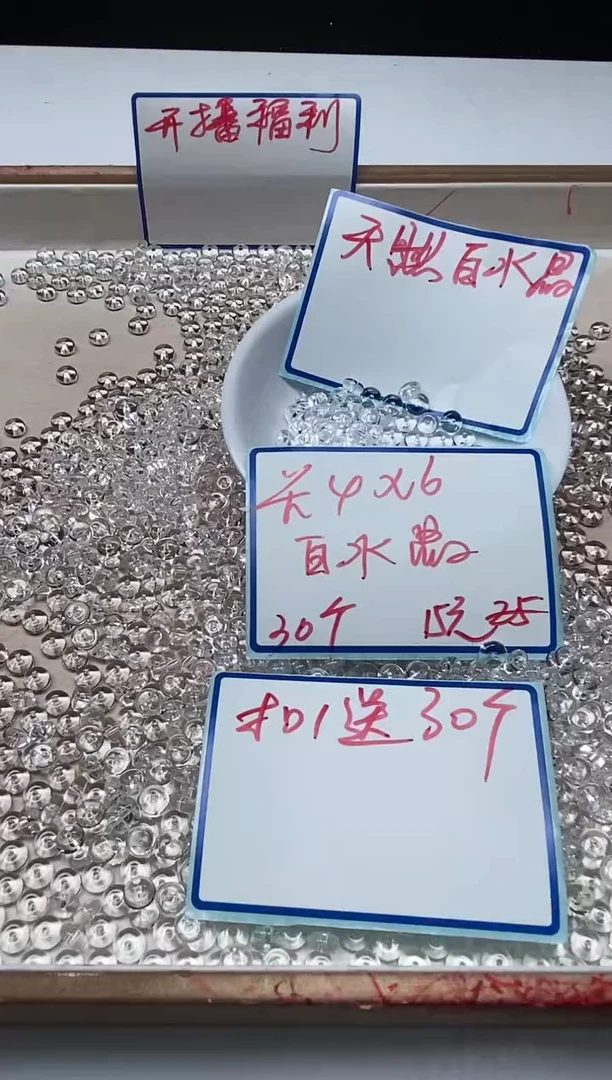 开播福利
天然白水晶
关4x6
白水晶
30个 15元
扣1送30个